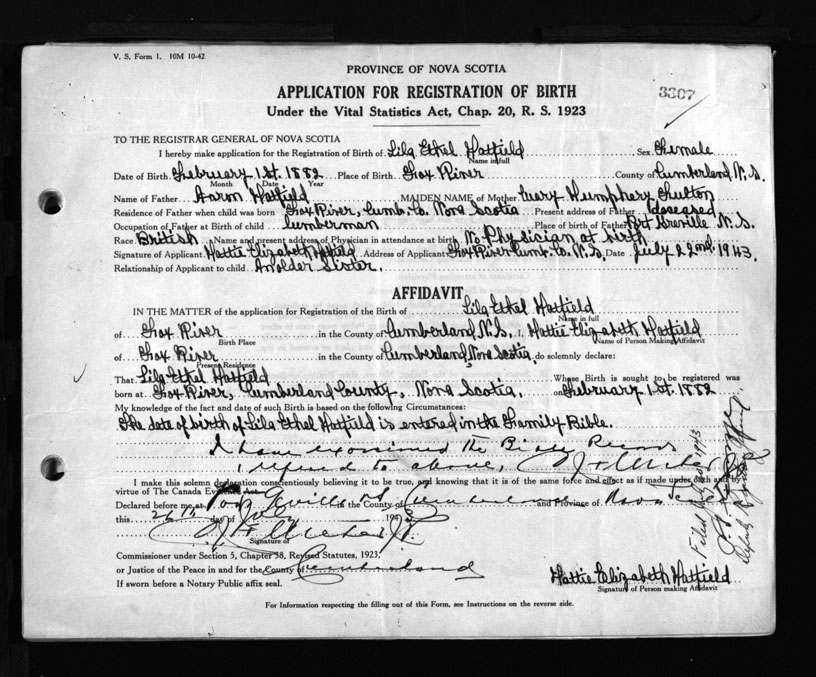 V. S. Form 1. 10M 10-42
PROVINCE OF NOVA SCOTIA
APPLICATION FOR REGISTRATION OF BIRTH
3307
Under the Vital Statistics Act, Chap. 20, R. S. 1923
TO THE REGISTRAR GENERAL OF NOVA SCOTIA
I hereby make application for the Registration of Birth of Lila Ethel Hatfield Sex Female
Name in full
Date of Birth February 1st. 1882 Place of Birth Fox River County of Cumberland N. S.
Month Date Year
Name of Father Aaron Hatfield MAIDEN NAME of Mother Humphery Fulton
Residence of Father when child was born Fox River, Cumb. Co. Nova Scotia Present address of Father (deseased
Occupation of Father at Birth of child Lumberman Place of birth of Father Port Greville N. S.
Race British Name and present address of Physician in attendance at birth No Physician at birth
Signature of Applicant Hattie Elizabeth Hatfield Address of Applicant Fox River Cumb. Co. N. S. Date July 22nd. 1943.
Relationship of Applicant to child An older Sister.
AFFIDAVIT
IN THE MATTER of the application for Registration of the Birth of Lila Ethel Hatfield
Name in full
of Fox River in the County of Cumberland, N.S. I, Hattie Elizabeth Hatfield
Birth Place Name of Person Making Affidavit
of Fox River in the County of Cumberland, Nova Scotia, do solemnly declare:
Present Residence
That Lila Ethel Hatfield Whose Birth is sought to be registered was
born at Fox River, Cumberland County, Nova Scotia, on February 1st. 1882
My knowledge of the fact and date of such Birth is based on the following Circumstances:
The date of birth of Lila Ethel Hatfield is entered in the Family Bible.
I have examined the Bible Record
referred to above,
I make this solemn declaration conscientiously believing it to be true, and knowing that it is of the same force and effect as if made under oath and by
virtue of The Canada Evidence Act.
Declared before me at Port Greville in the County of Cumberland and Province of Nova Scotia
this 26th day of July 1943
Signature of
Commissioner under Section 5, Chapter 38, Revised Statutes, 1923,
or Justice of the Peace in and for the County of Cumberland
If sworn before a Notary Public affix seal.
Hattie Elizabeth Hatfield
Signature of Person making Affidavit
For Information respecting the filling out of this Form, see Instructions on the reverse side.